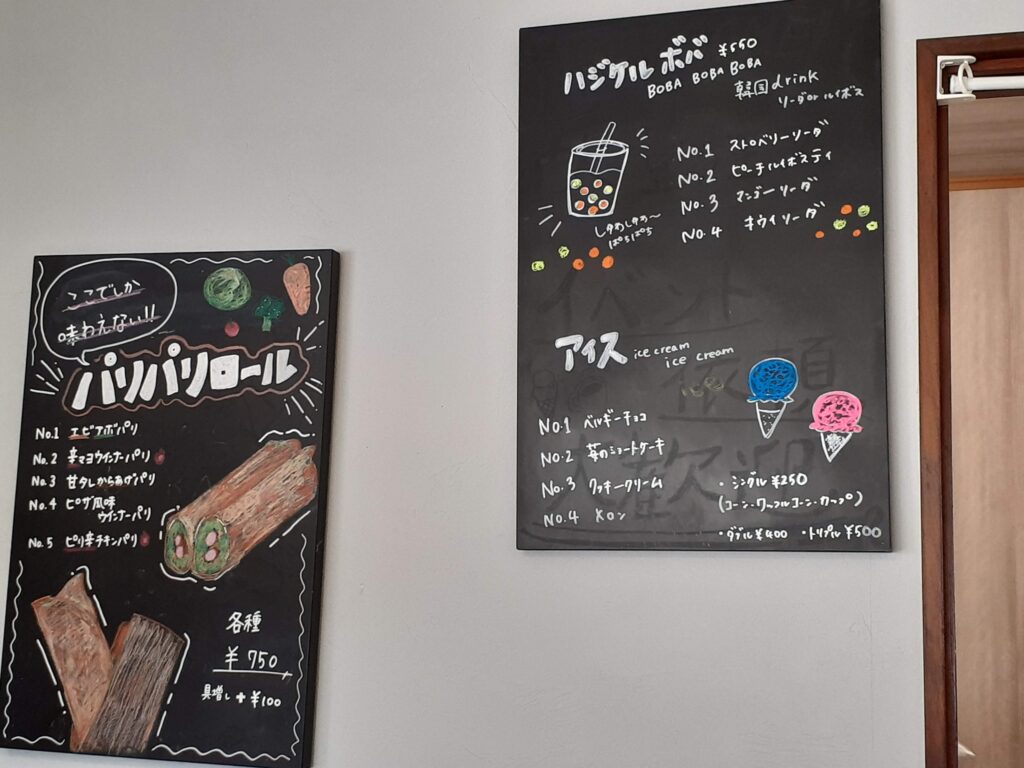 ここでしか
味わえない!!
パリパリロール
No.1 エビアボパリ
No.2 辛マヨウインナーパリ
No.3 甘タレからあげパリ
No.4 ピザ風味
ウインナーパリ
No.5 ピリ辛チキンパリ
各種
¥750
具増し+¥100
ハジケル ボバ ¥550
BOBA BOBA BOBA
韓国drink
ソーダorルイボス
No.1 ストロベリーソーダ
No.2 ピーチルイボスティ
No.3 マンゴーソーダ
No.4 キウイソーダ
しゅわしゅわ〜
ぱちぱち
イベント
依頼
大歓迎
アイス ice cream
ice cream
No.1 ベルギーチョコ
No.2 苺のショートケーキ
No.3 クッキークリーム
No.4 メロン
・シングル ¥250
(コーン・ワッフルコーン・カップ)
・ダブル ¥400 ・トリプル ¥500